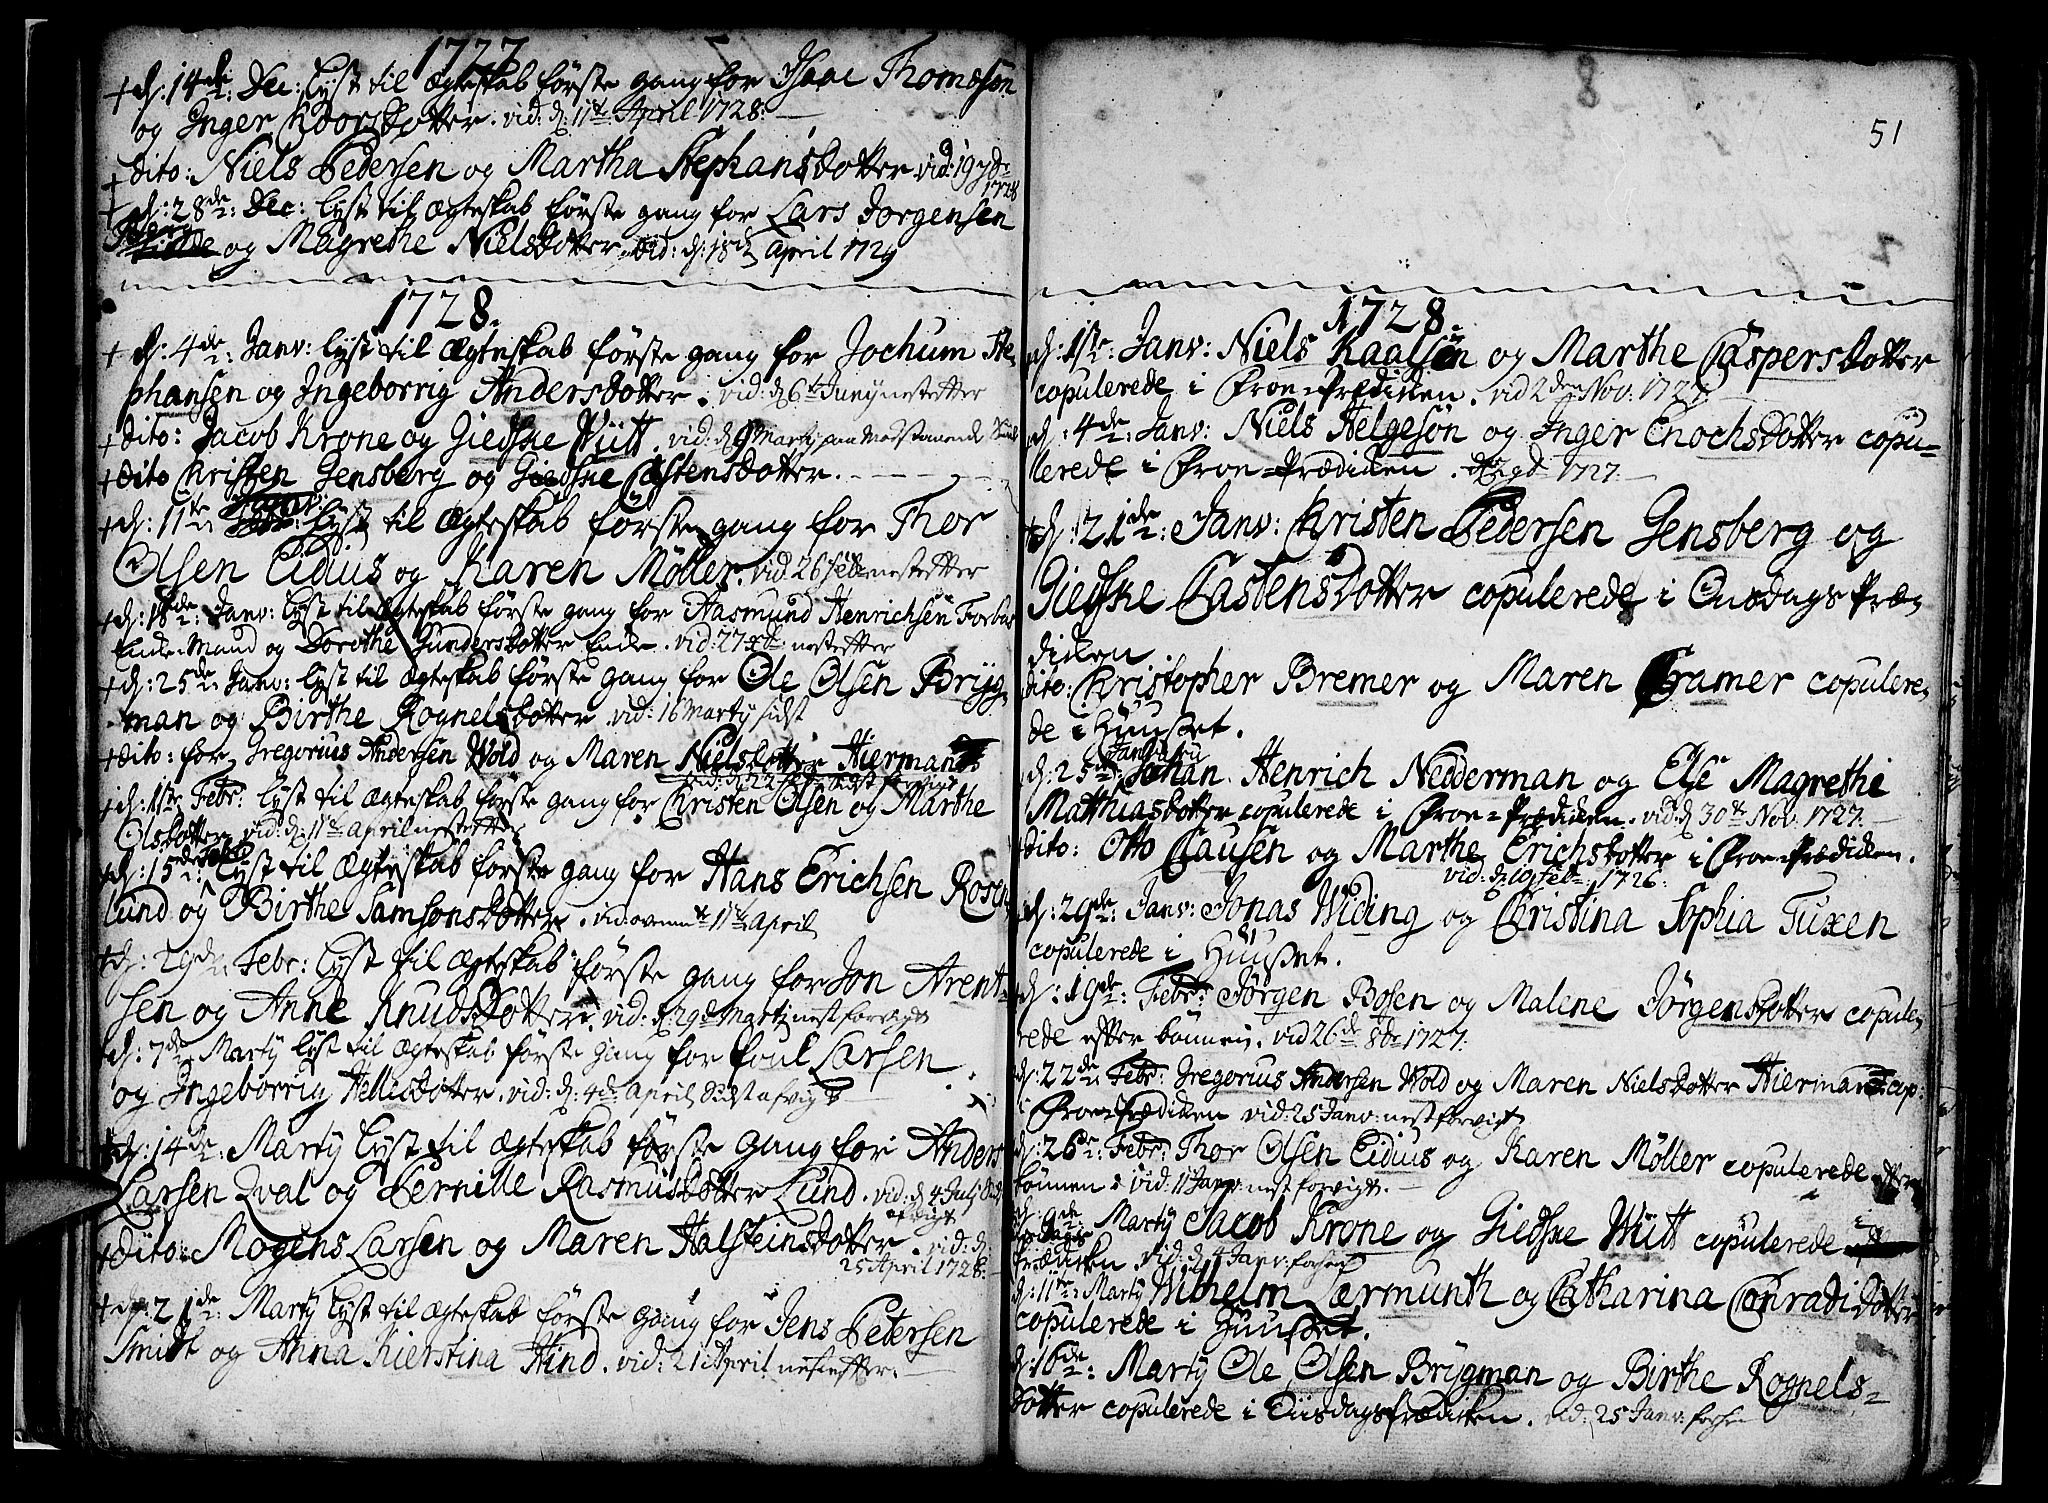 1727
+ d: 14de: Dec: lyst til Ægteskab förste gang for Isaac Thomesön
og Inger Koorsdotter. vid: d: 11te April 1728:
+ dito: Niels Pedersen og Martha Stephansdotter vid: 19
1728
+ d: 28de: Dec: lyst til Ægteskab förste gang for Lars Jörgensen
Berg
og Magrethe Nielsdotter. vid: d: 18d April 1729
1728.
+ d: 4de: Janv: lyst til Ægteskab förste gang for Jochum Ste-
phansen og Ingeborrig Andersdotter. vid: d 6te Junij nestefter
+ dito: Jacob Krone og Giedske Wiitt. vid: d 9 Marty paa modstaaende Side
+ dito Kristen Gensberg og Giedske Castensdotter.
+ d: 11te Janv: lyst til Ægteskab förste gang for Thor
Olsen Eidius og Karen Möller. vid: 26 Feb: nestefter
+ d: 18de: Janv: lyst til Ægteskab förste gang for Aasmund Henrichsön Forbus
Enke-Mand og Dorothe Gundersdotter Enke. vid: 27 nestefter
+ d: 25de: Janv: lyst til Ægteskab förste gang for Ole Olsen Bryg-
man og Birthe Rognelsdotter. vid: 16 Marty sidst
+ dito: for Gregorius Andersen Wold og Maren Nielsdotter Hiermand
vid: d: 22 Feb:
+ d: 1ste Febr: lyst til Ægteskab förste gang for Christen Olsen og Marthe
Olsdotter vid: d: 11te April nestefter
+ d: 15de Febr: lyst til Ægteskab förste gang for Hans Erichsen Rosen
lund og Birthe Samsonsdotter. vid: 11te April
+ d: 29de Febr: lyst til Ægteskab förste gang for Jon Arent-
sen og Anne Knudsdotter. vid: d: 29d Martz nestforvigt
d: 7de Marty lyst til Ægteskab förste gang for Poul Larsen
og Ingeborrig Hellisdotter. vid: d: 4de April Sidst afvigt
+ d: 14de: Marty lyst til Ægteskab förste gang for Anders
Larsen Qval og Pernille Rasmusdotter Lund. vid: d 4 July Sidst
afvigt
+ dito: Mogens Larsen og Maren Halsteinsdotter. vid: d:
25 April 1728.
+ d: 21de: Marty lyst til Ægteskab förste gang for Jens Petersen
Smidt og Anna Kierstina Hind. vid: 21 April nestefter.
51
1728.
d: 1ste: Janv: Niels Kaalsen og Marthe Caspersdotter
copulerede i Froe-Prædiken. vid 2den Nov: 1727
d: 4de: Janv: Niels Helgesön og Inger Enochsdotter copu-
lerede i Froe-Prædiken. 1727.
+ d: 21de: Janv: Kristen Pedersen Gensberg og
Giedske Castensdotter copulerede i Onsdags Præ-
diken.
dito: Christopher Bremer og Maren Cramer copulere-
de i Huuset.
Januarii
d: 25de: Johan Henrich Nedderman og Else Magrethe
Matthiasdotter copulerede i Froe-Prædiken. vid: d 30te Nov. 1727.
dito: Otto Clausen og Marthe Erichsdotter i Froe-Prædiken.
vid: d: 19 Feb: 1726:
d: 29de: Janv: Jonas Widing og Christina Sophia Tuxen
copulerede i Huuset.
d: 19de: Febr: Jörgen Bosen og Malene Jörgensdotter copule-
rede efter bönnen. vid 26de 8br 1727:
d: 22de: Febr: Gregorius Andersen Wold og Maren Nielsdotter Hiermand cop:
i Froe-Prædiken vid: 25 Janv: nestforvigt
d: 26de: Febr: Thor Olsen Eidius og Karen Möller copulerede efter
bönnen. vid: 11 Janv: nestforvigt.
d: 9de: Marty Jacob Krone og Giedske Wiitt copulerede i
Prædiken. vid: d 4 Janv:
d: 11te: Marty Wilhelm Lærmunth og Catharina Conradi dotter
copulerede i Huuset.
d: 16de: Marty Ole Olsen Brygman og Birthe Rognels-
dotter copulerede i Tiisdagsprædiken. vid: 25 Janv: